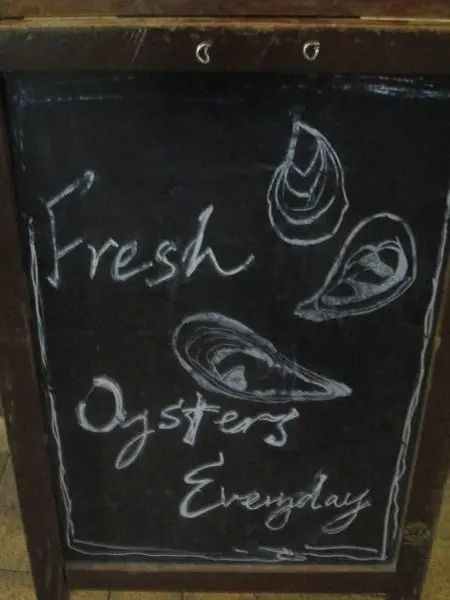 Fresh
Oysters
Everyday